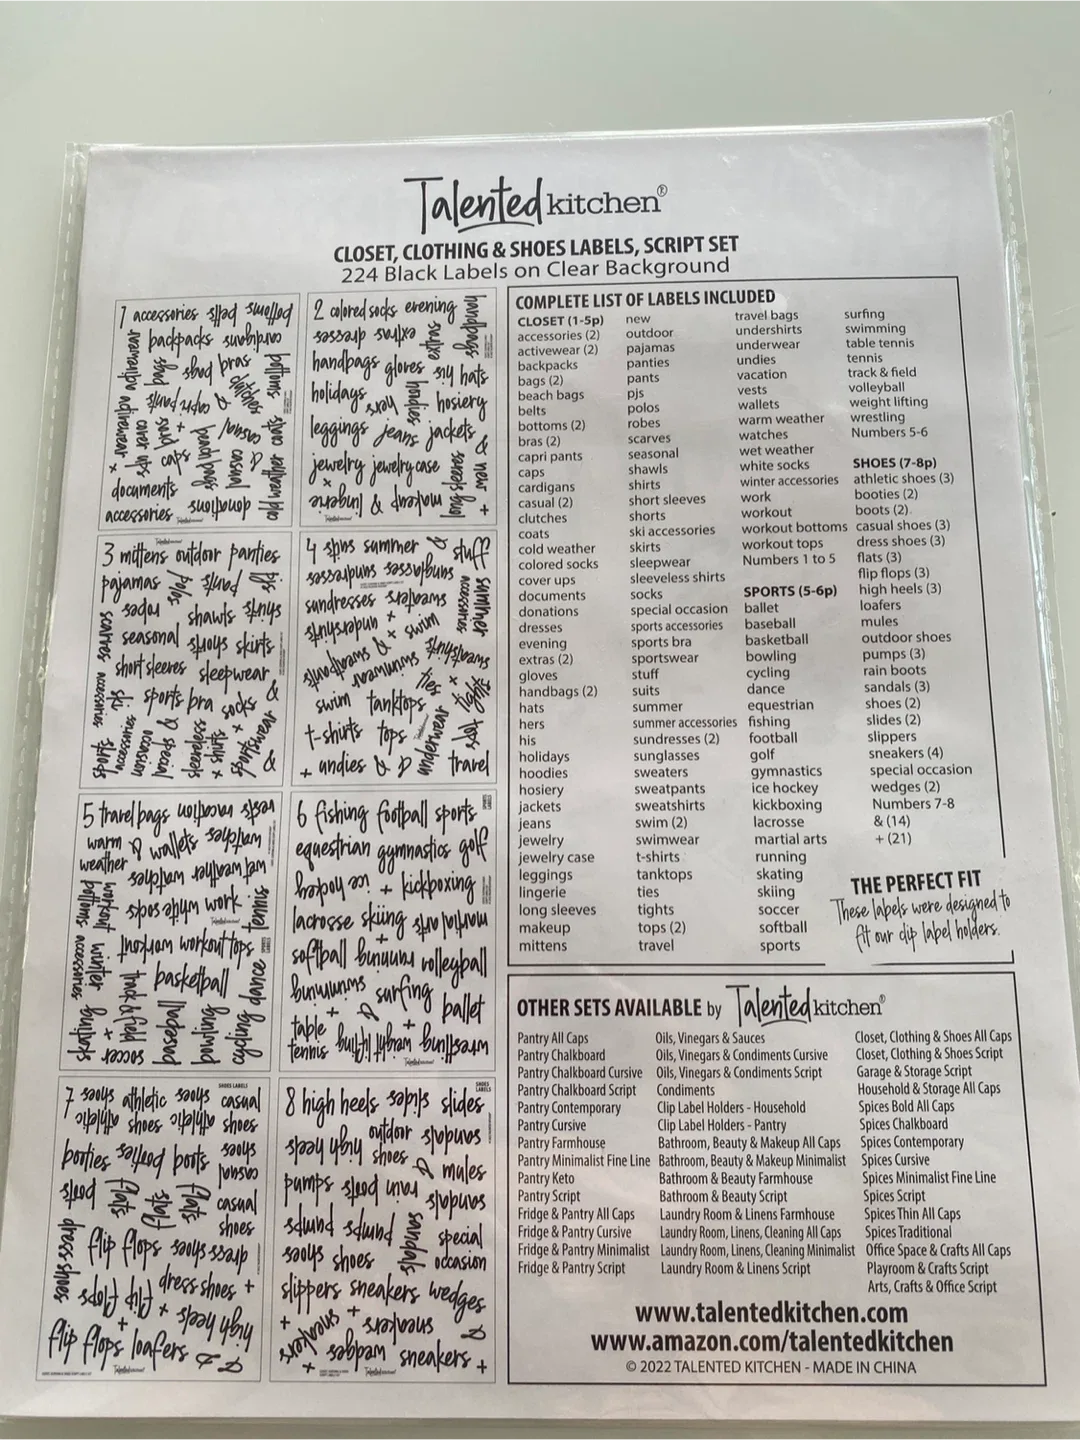 Talented kitchen®
CLOSET, CLOTHING & SHOES LABELS, SCRIPT SET
224 Black Labels on Clear Background
COMPLETE LIST OF LABELS INCLUDED
CLOSET (1-5p)
accessories (2)
activewear (2)
backpacks
bags (2)
beach bags
belts
bottoms (2)
bras (2)
capri pants
caps
cardigans
casual (2)
clutches
coats
cold weather
colored socks
cover ups
documents
donations
dresses
evening
extras (2)
gloves
handbags (2)
hats
hers
his
holidays
hoodies
hosiery
jackets
jeans
jewelry
jewelry case
leggings
lingerie
long sleeves
makeup
mittens
new
outdoor
pajamas
panties
pants
pjs
polos
robes
scarves
seasonal
shawls
shirts
short sleeves
shorts
ski accessories
skirts
sleepwear
sleeveless shirts
socks
special occasion
sports accessories
sports bra
sportswear
stuff
suits
summer
summer accessories
sundresses (2)
sunglasses
sweaters
sweatpants
sweatshirts
swim (2)
swimwear
t-shirts
tanktops
ties
tights
tops (2)
travel
travel bags
undershirts
underwear
undies
vacation
vests
wallets
warm weather
watches
wet weather
white socks
winter accessories
work
workout
workout bottoms
workout tops
Numbers 1 to 5
SPORTS (5-6p)
ballet
baseball
basketball
bowling
cycling
dance
equestrian
fishing
football
golf
gymnastics
ice hockey
kickboxing
lacrosse
martial arts
running
skating
skiing
soccer
softball
sports
surfing
swimming
table tennis
tennis
track & field
volleyball
weight lifting
wrestling
Numbers 5-6
SHOES (7-8p)
athletic shoes (3)
booties (2)
boots (2)
casual shoes (3)
dress shoes (3)
flats (3)
flip flops (3)
high heels (3)
loafers
mules
outdoor shoes
pumps (3)
rain boots
sandals (3)
shoes (2)
slides (2)
slippers
sneakers (4)
special occasion
wedges (2)
Numbers 7-8
& (14)
+ (21)
THE PERFECT FIT
These labels were designed to
fit our clip label holders.
OTHER SETS AVAILABLE by Talented kitchen®
Pantry All Caps
Pantry Chalkboard
Pantry Chalkboard Cursive
Pantry Chalkboard Script
Pantry Contemporary
Pantry Cursive
Pantry Farmhouse
Pantry Minimalist Fine Line
Pantry Keto
Pantry Script
Fridge & Pantry All Caps
Fridge & Pantry Cursive
Fridge & Pantry Minimalist
Fridge & Pantry Script
Oils, Vinegars & Sauces
Oils, Vinegars & Condiments Cursive
Oils, Vinegars & Condiments Script
Condiments
Clip Label Holders - Household
Clip Label Holders - Pantry
Bathroom, Beauty & Makeup All Caps
Bathroom, Beauty & Makeup Minimalist
Bathroom & Beauty Farmhouse
Bathroom & Beauty Script
Laundry Room & Linens Farmhouse
Laundry Room, Linens, Cleaning All Caps
Laundry Room, Linens, Cleaning Minimalist
Laundry Room & Linens Script
Closet, Clothing & Shoes All Caps
Closet, Clothing & Shoes Script
Garage & Storage Script
Household & Storage All Caps
Spices Bold All Caps
Spices Chalkboard
Spices Contemporary
Spices Cursive
Spices Minimalist Fine Line
Spices Script
Spices Thin All Caps
Spices Traditional
Office Space & Crafts All Caps
Playroom & Crafts Script
Arts, Crafts & Office Script
www.talentedkitchen.com
www.amazon.com/talentedkitchen
© 2022 TALENTED KITCHEN - MADE IN CHINA
1 accessories belts bottoms
backpacks cardigans
bags bras bags
capri pants &
casual
beach bags
caps
cover ups
activewear
cold weather coats
documents
accessories donations
2 colored socks evening handbags
dresses extras extras
handbags gloves his hats
holidays hers hoodies hosiery
leggings jeans jackets &
jewelry jewelry case new +
lingerie & makeup long sleeves
3 mittens outdoor panties
pajamas polos pants pjs
robes shawls shirts
scarves seasonal shorts skirts
short sleeves sleepwear &
sports bra socks
special occasion
4 suits summer & stuff
sunglasses sundresses summer accessories
sundresses sweaters
undershirts + swim
sweatpants sweatshirts
swimwear
swim tanktops ties
t-shirts tops underwear tops
+ undies & & travel
5 travel bags vacation vests
warm weather & wallets watches
wet weather watches
white socks work tennis
workout workout tops
workout bottoms winter accessories
basketball dance
track & field baseball bowling cycling
skating soccer +
6 fishing football sports
equestrian gymnastics golf
ice hockey + kickboxing
lacrosse skiing martial arts
softball running volleyball
swimming surfing ballet
table tennis weight lifting wrestling
7 shoes athletic shoes casual
athletic shoes athletic shoes
booties booties boots shoes casual
boots flats flats flats casual shoes
dress shoes flip flops dress shoes
flip flops dress shoes +
high heels +
flip flops loafers &
SHOES LABELS
8 high heels slides slides
high heels outdoor shoes sandals
& mules
pumps rain boots sandals
pumps pumps sandals special occasion
shoes shoes
slippers sneakers wedges
sneakers + sneakers &
+ wedges sneakers +
SHOES LABELS